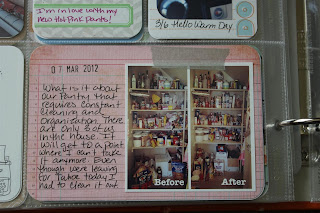 I'm in love with my
new Hot Pink Pants!
3/6 Hello Warm Day
07 MAR 2012
What is it about
our Pantry that
requires constant
cleaning and
organization. There
are only 3 of us
in the house. It
will get to a point
where I can't take
it anymore. Even
though we're leaving
for Tahoe today I
had to clean it out.
Before
After